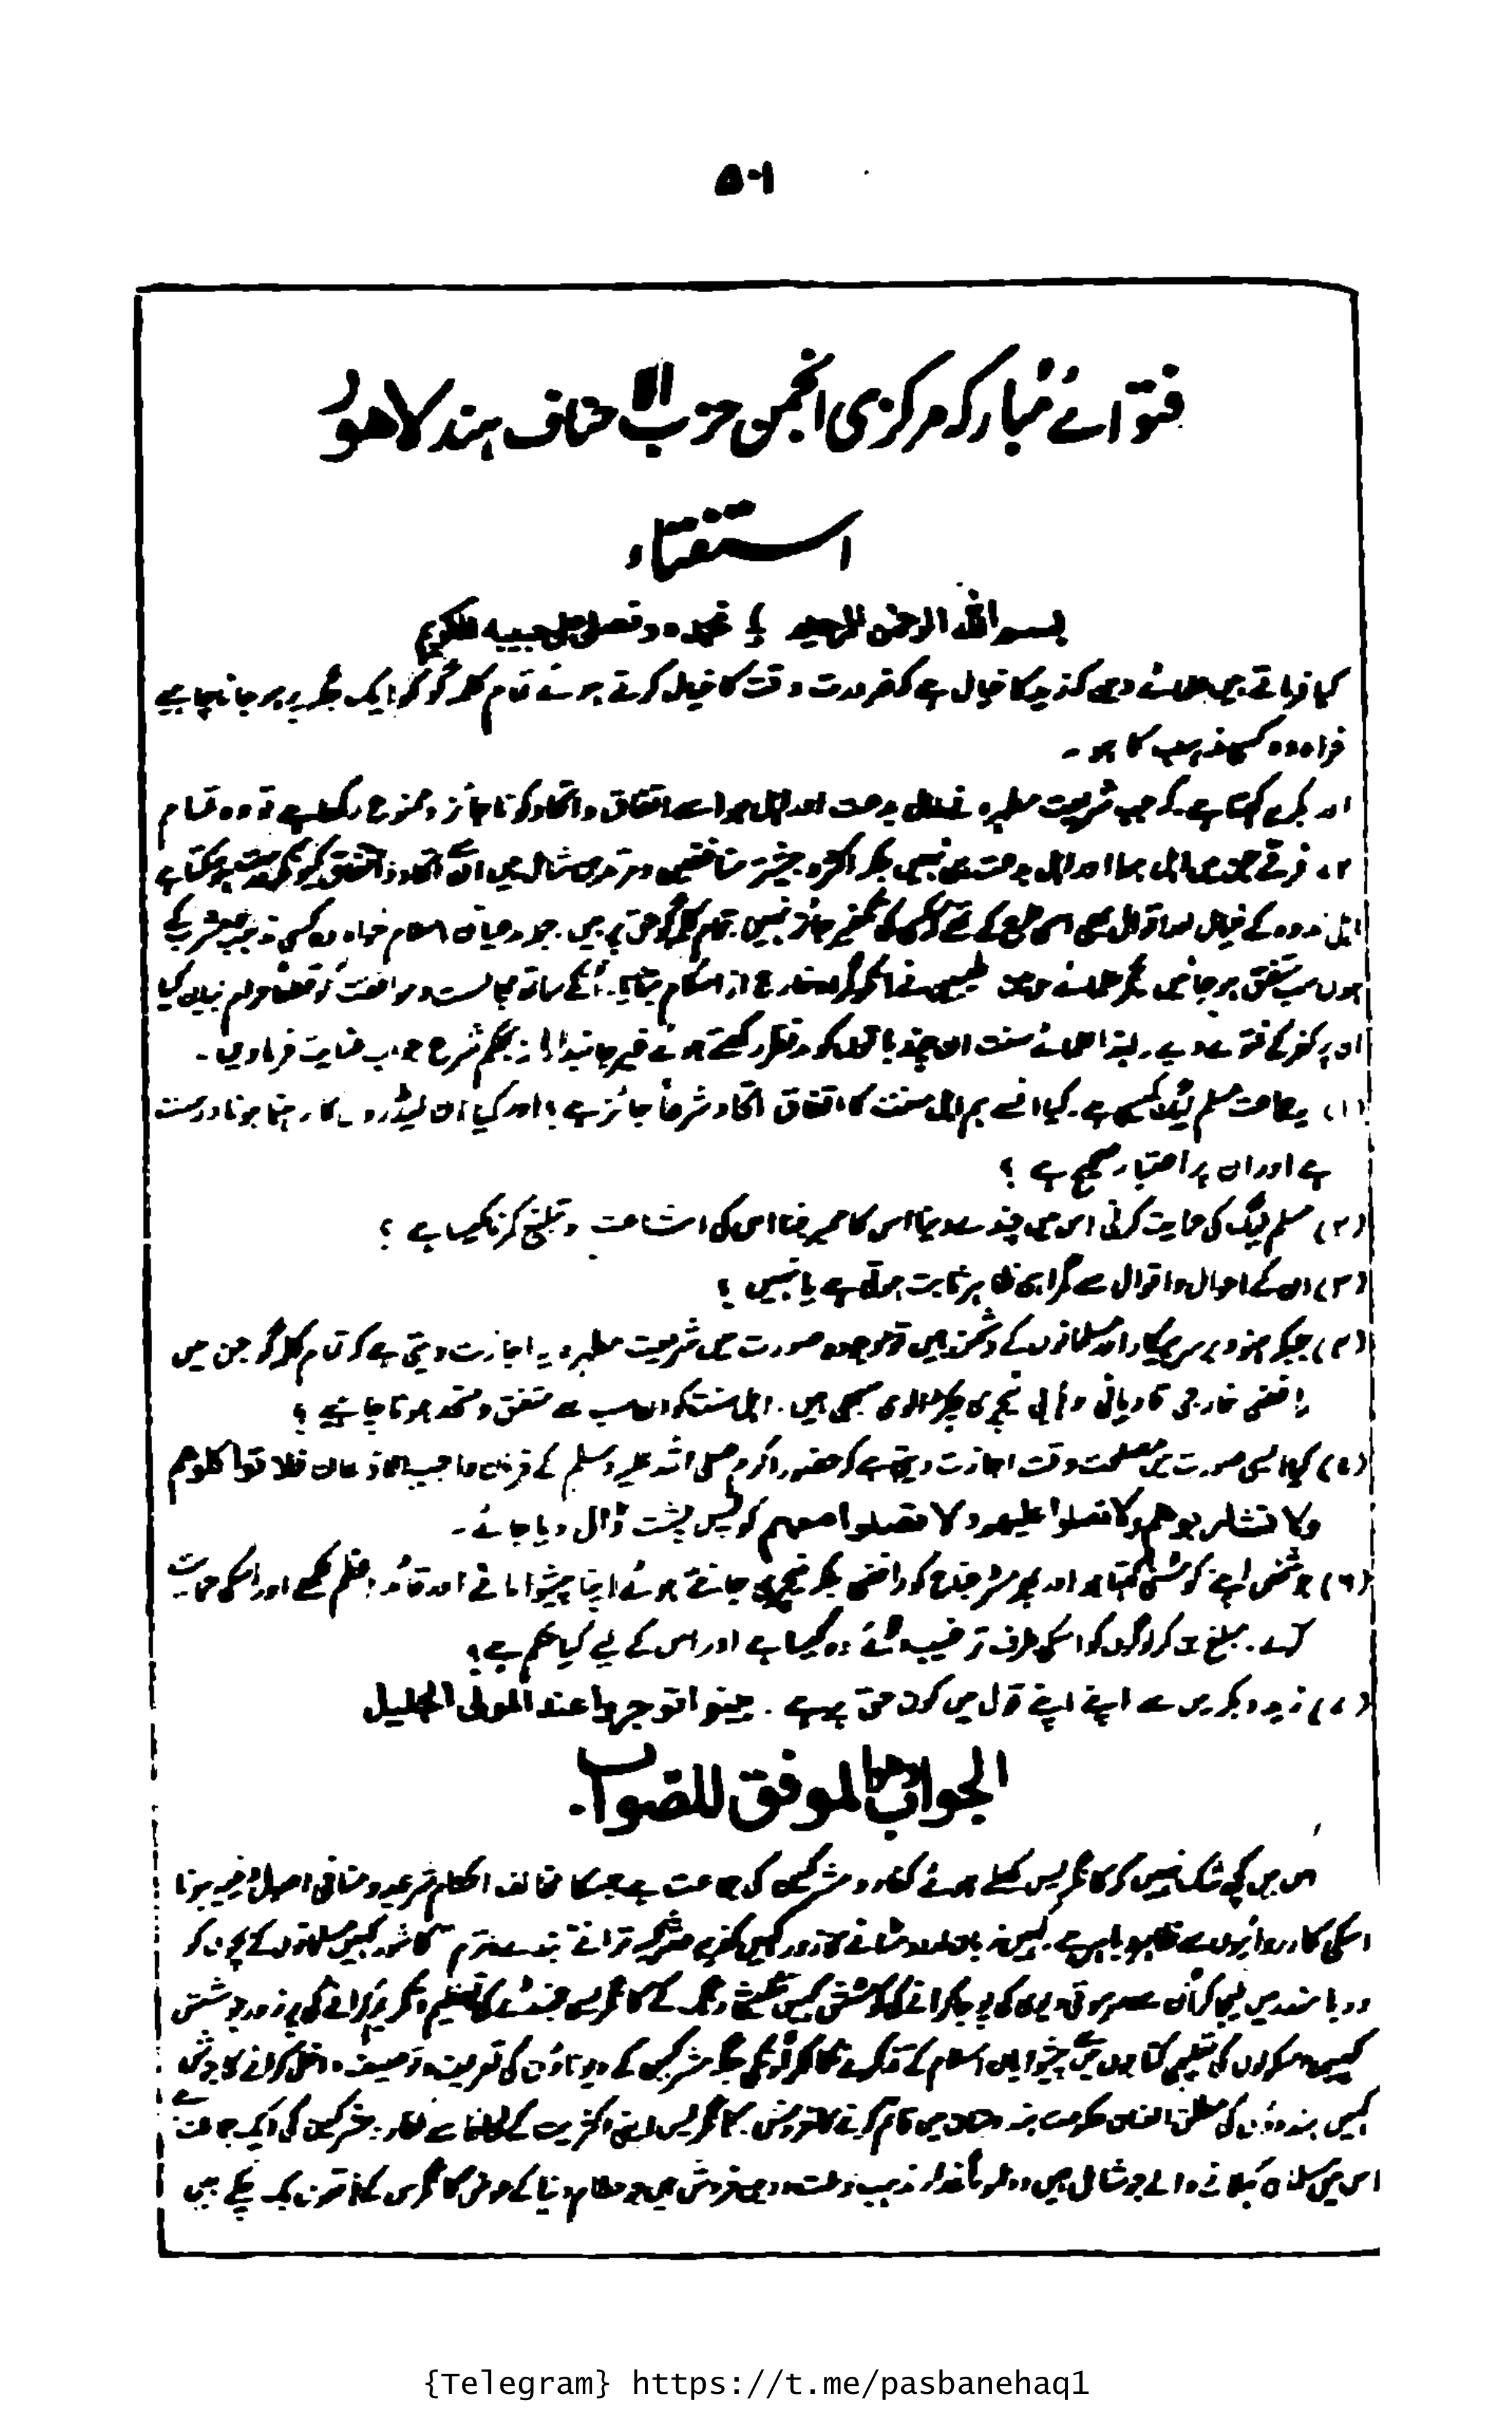 ۵۰۱
فتوائے مبارکہ مرکزی انجمن حزب الاحناف ہند لاھور
استفتاء
بسم اللہ الرحمن الرحیم نحمدہ و نصلی علی حبیبہ الکریم
کیا فرماتے ہیں علمائے دین کہ زید کا خیال ہے کہ ضرورت وقت کا خیال کرتے ہوئے تمام کلمہ گو کو ایک جگہ پر ہو جانا چاہیے
خواہ وہ کسی مذہب کا ہو۔
اور بکر کہتا ہے کہ جب شریعت مطہرہ نے اہل بدعت اور اہل ہوا سے اتفاق و اتحاد کو ناجائز و ممنوع رکھا ہے تو وہ تمام
فرقے جن میں اہل ہوا اور اہل بدعت ہی نہیں بلکہ اکثر و بیشتر منافقین و مرتدین شامل ہیں ان سے اتحاد و اتفاق کیونکر درست ہو سکتا ہے
اہل ندوہ کے خیال اور اقوال بھی اسی طرح کے تھے کہ کسی کی تکفیر جائز نہیں۔ تمام کلمہ گو حق پر ہیں۔ جملہ مدعیان اسلام خواہ وہ کسی مذہب و مشرب کے
ہوں سب متفق ہو جائیں مگر علمائے حرمین طیبین نے انکو گمراہ خارج از اسلام بتایا۔ انکے ساتھ مجالست و موافقت کو قطعاً حرام بیان کیا
ان پر کفر کے فتوے دیے۔ لہذا علمائے سنت ان چند باتوں کو مدنظر رکھتے ہوئے غیر جانبدارانہ بحکم شرع جواب عنایت فرمادیں۔
(۱) یہ جماعت مسلم لیگ کیسی ہے۔ کیا انسے ہم اہل سنت کا اتفاق اتحاد شرعاً جائز ہے؟ اور کیا ان لیڈروں کا رہنما ہونا درست
ہے اور ان پر اعتبار صحیح ہے؟
(۲) مسلم لیگ کی حمایت کرنی اس میں چندے دینا اس کا ممبر بننا اس کی اشاعت و تبلیغ کرنا کیسا ہے؟
(۳) ان کے احوال و اقوال سے گمراہی ان پر ثابت ہوتی ہے یا نہیں؟
(۴) جبکہ ہنود برسر پیکار اور مسلمانوں کے دشمن ہیں تو موجودہ صورت میں شریعت مطہرہ یہ اجازت دیتی ہے کہ تمام کلمہ گو جن میں
رافضی خارجی قادیانی وہابی نیچری چکڑالوی سبھی ہیں۔ اہل سنت کو ان سب سے متفق و متحد ہونا چاہیے؟
(۵) کیا ایسی صورت میں مصلحت وقت اجازت دیتی ہے کہ حضور اکرم صلی اللہ علیہ وسلم کے فرمان واجب الاذعان فلا تواکلوھم
ولا تشاربوھم ولا تصلوا علیھم ولا تصلوا معھم کو پس پشت ڈال دیا جائے۔
(۶) جو شخص اپنے کو سنی کہتا ہو اور پھر مسٹر جناح کو رافضی بلکہ نیچری جانتے ہوئے اپنا پیشوا مانے اور قائد اعظم لکھے اور اسکی حمایت
کرے۔ مبلغ بن کر لوگوں کو اسکی طرف ترغیب دلائے وہ کیسا ہے اور اس کے لیے کیا حکم ہے؟
(۷) زید و بکر میں سے اپنے اپنے قول میں کون حق پر ہے۔ بینوا توجروا عند المولی الجلیل
الجواب وھو الموفق للصواب۔
اس میں کچھ شک نہیں کہ کانگریس کھلے ہوئے کفار و مشرکین کی جماعت ہے جسکا مخالف احکام شرعیہ و منافی اصول دینیہ ہونا
اسکی کارروائیوں سے ظاہر و باہر ہے۔ کہیں زبان اردو مٹانے کا زور کہیں کفریہ مشرکیہ ترانے بندے ماترم کا شور کہیں مسلمانوں کے بچوں کو
ودیا مندر میں لیجا کر ان سے سرسوتی دیوی کی پوجا کرانے کی کوشش کہیں کانگریسی جھنڈے کی تعظیم
کہیں اسکولوں کی تعلیمی کتابوں میں سے پیشوایان اسلام کے تذکرے نکال کر انکی جگہ مشرکین کے دیوتاؤں کی تعریف و توصیف داخل کرانے کا جوش
کہیں ہندوؤں کی مطلق العنان حکومت ہندوستان میں قائم کرنے کا خروش۔ کانگریس اپنی اکثریت کے لحاظ سے کفار و مشرکین کی ایک جماعت ہے
اس میں مسلمان کہلانے والے جو شامل ہیں وہ غدار مذہب و ملت و دین فروش ہیں جو حطام دنیا کے عوض کانگریس کے ہاتھوں بک چکے ہیں
{Telegram} https://t.me/pasbanehaq1